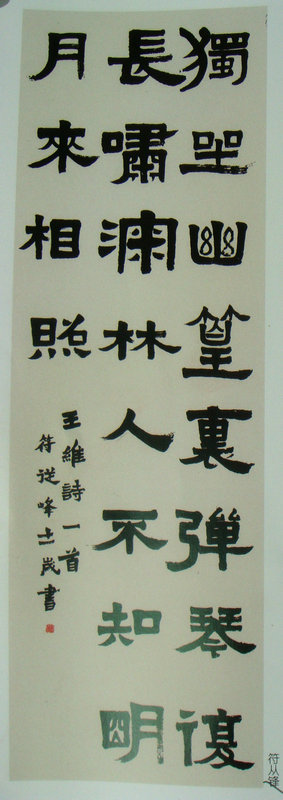 獨坐幽篁裏彈琴復
長嘯深林人不知明
月來相照
王維詩一首
符從峰十一歲書
符从锋